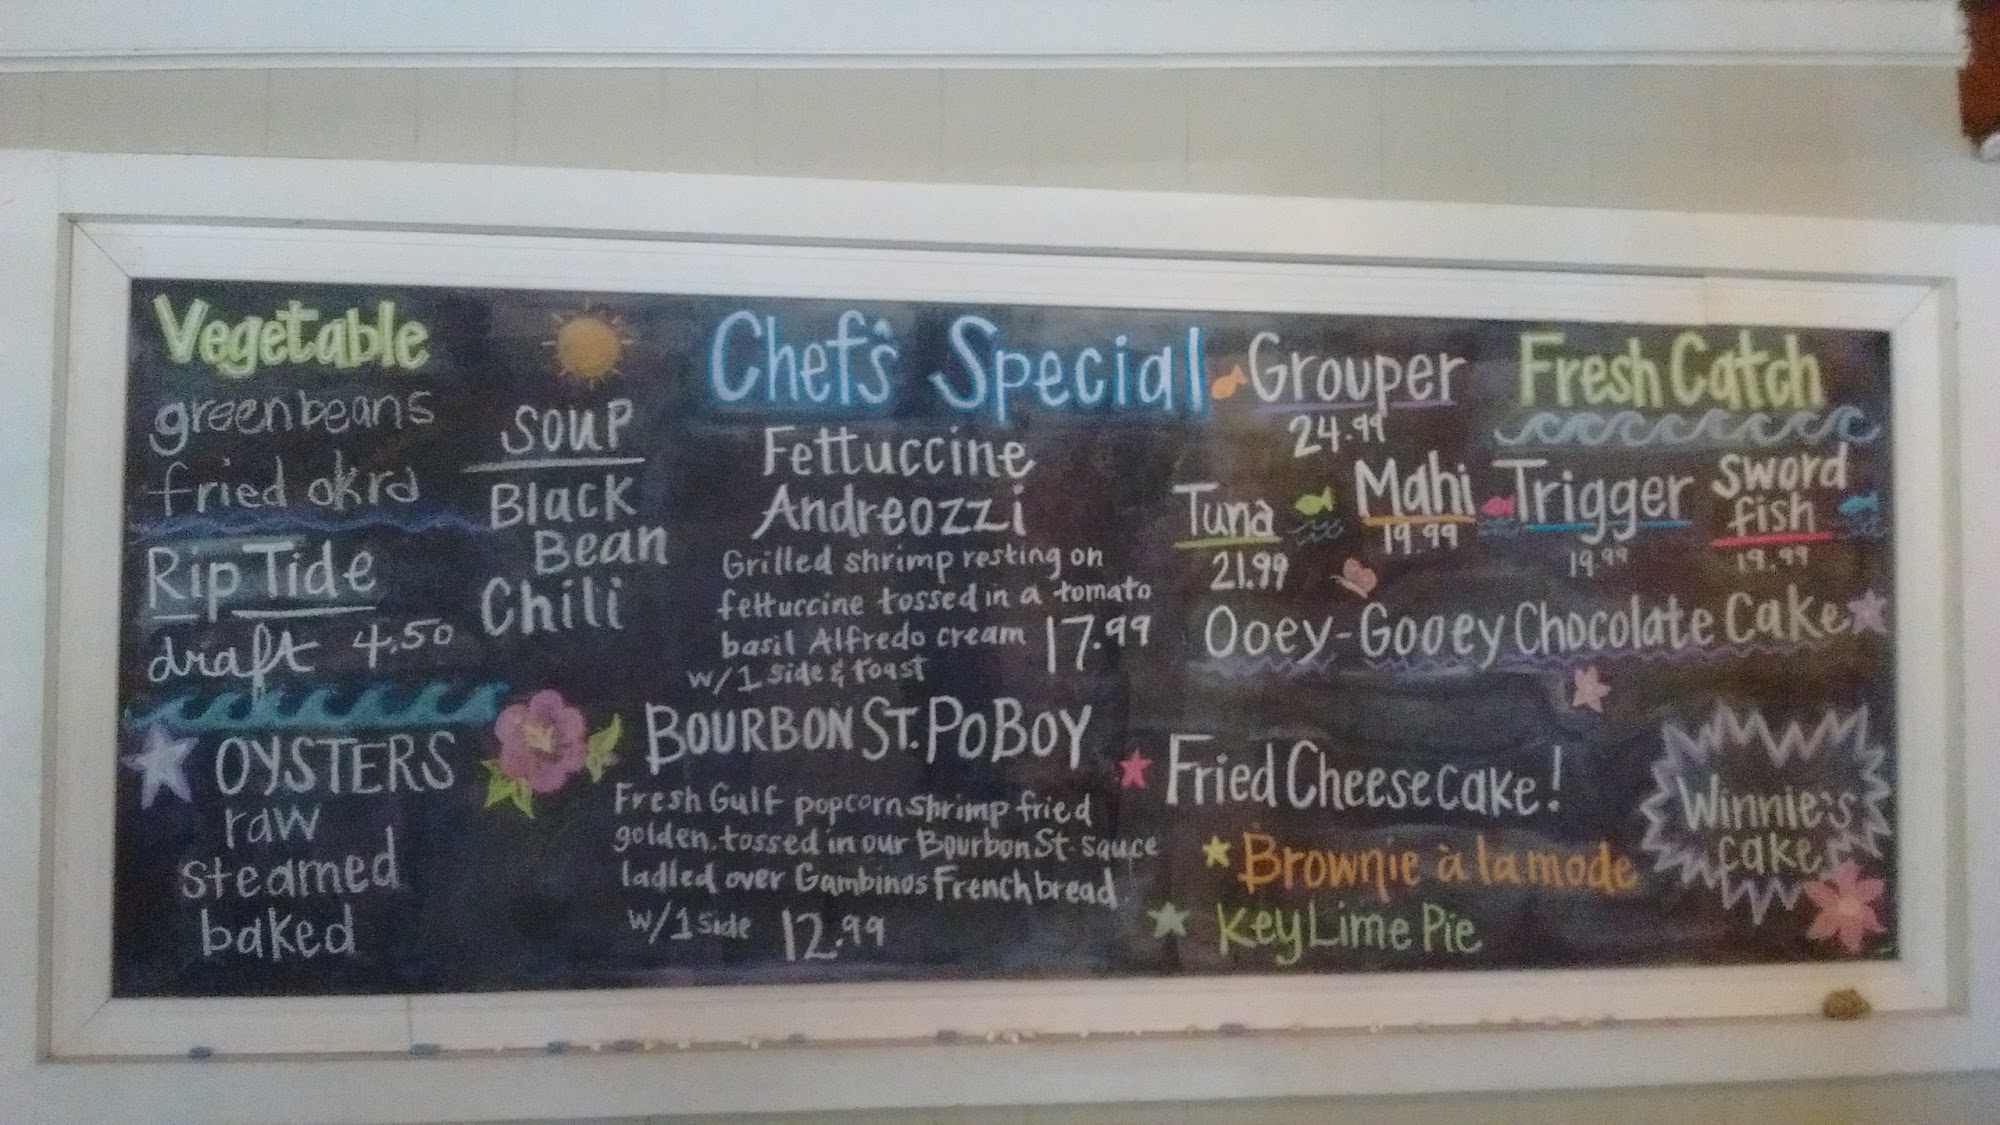 Vegetable
green beans
fried okra
Rip Tide
draft 4.50
OYSTERS
raw
steamed
baked
SOUP
Black
Bean
Chili
Chef's Special
Fettuccine
Andreozzi
Grilled shrimp resting on
fettuccine tossed in a tomato
basil Alfredo cream 17.99
w/1 side & toast
BOURBON ST. PO BOY
Fresh Gulf popcorn shrimp fried
golden, tossed in our Bourbon St. sauce
ladled over Gambinos French bread
w/1 side 12.99
Grouper
24.99
Fresh Catch
Tuna
21.99
Mahi
19.99
Trigger
19.99
Sword
fish
19.99
Ooey-Gooey Chocolate Cake
Fried Cheesecake!
Brownie à la mode
Key Lime Pie
Winnie's
cake